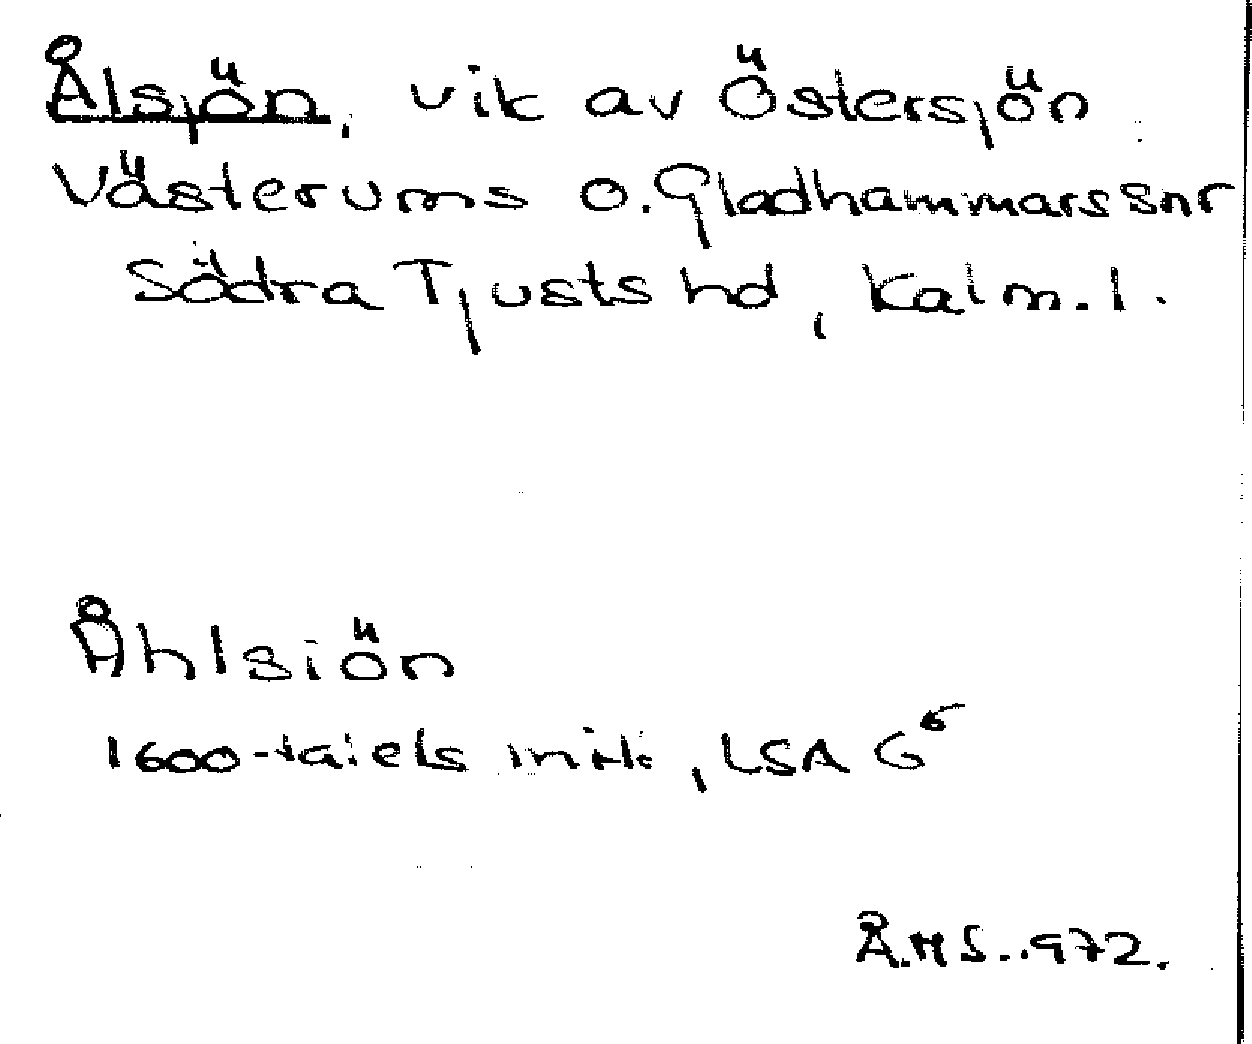 Ålsjön, vik av Östersjön
Västerums o. Gladhammars snr
Södra Tjusts hd, Kalm. l.
Åhlsiön
1600-talets mitt, LSA G⁶
Å.H S. 1972.